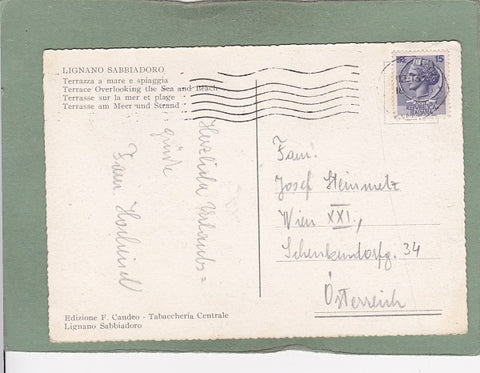 LIGNANO SABBIADORO
Terrazza a mare e spiaggia
Terrace Overlooking the Sea and Beach
Terrasse sur la mer et plage
Terrasse am Meer und Strand
Herzliche Urlaubs=
grüße
Fam.
Fam.
Josef Steinmetz
Wien XXI,
Schenkendorfg. 34
Österreich
Edizione F. Candeo - Tabaccheria Centrale
Lignano Sabbiadoro
15